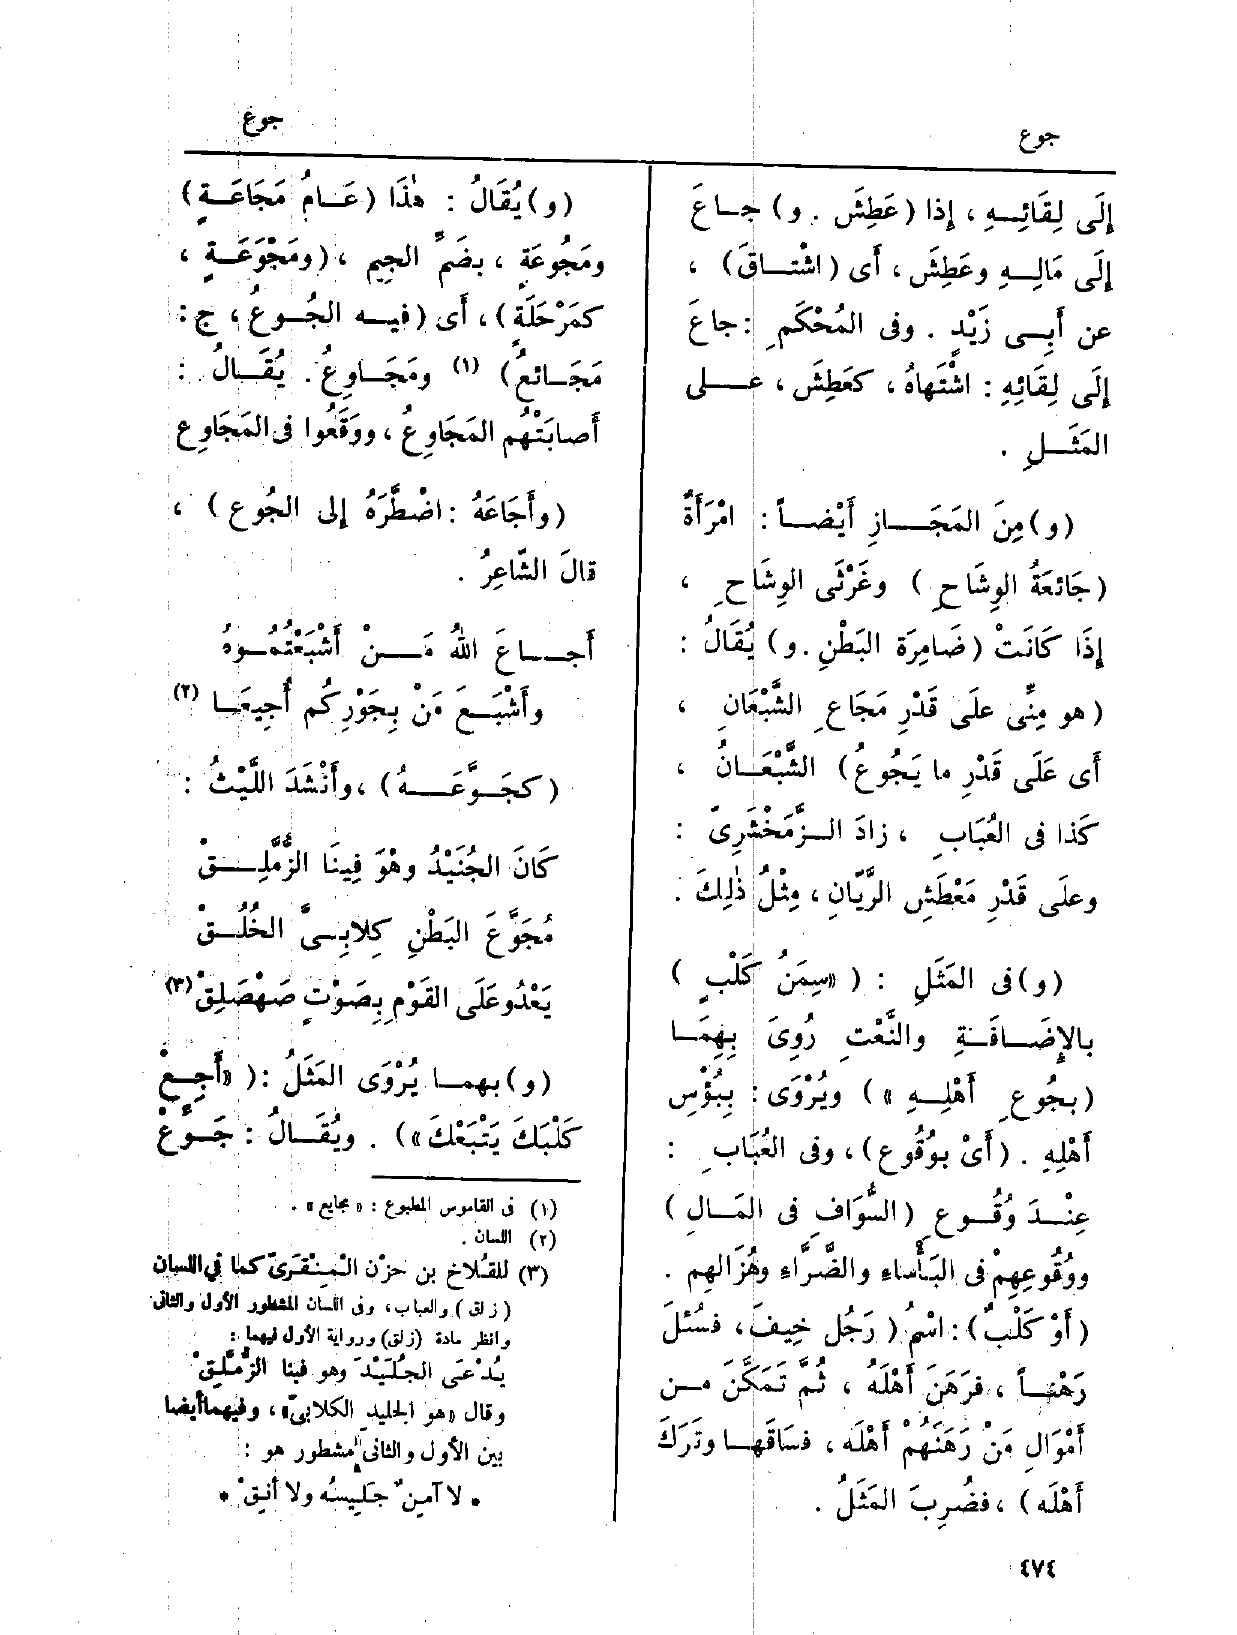 جوع
جوع
إلَى لِقَائِــهِ ، إذا (عَطِشَ . و) جــاعَ
إلَى مَالِــهِ وعَطِشَ ، أى (اشْتــاقَ) ،
عن أَبِــى زَيْدٍ . وفى المُحْكَمِ : جاعَ
إلَى لِقَائِهِ : اشْتَهاهُ ، كعَطِشَ ، علــى
المَثَــلِ .
(و) مِنَ المَجَــازِ أَيْضــاً : امْرَأَةٌ
(جَائعَةُ الوِشَاحِ ) وغَرْثَى الوِشَاحِ ،
إذَا كَانَتْ (ضَامِرَة البَطْنِ . و) يُقَالُ :
(هو مِنِّى علَى قَدْرِ مَجَاعِ الشَّبْعَانِ ،
أى عَلَى قَدْرِ ما يَجُوعُ) الشَّبْعَــانُ ،
كذا فى العُبَابِ ، زادَ الــزَّمَخْشَرِىّ :
وعلَى قَدْرِ مَعْطَشِ الرَّيّانِ ، مِثْلُ ذٰلِكَ .
(و) فى المَثَلِ : ( «سِمَنُ كَلْبٍ )
بالإِضَــافَــةِ والنَّعْتِ رُوِىَ بِهِمَــا
(بجُوعِ أَهْلِــهِ » ) ويُرْوَى : بِبُؤْسِ
أَهْلِهِ . (أَىْ بوُقُوع) ، وفى العُبَابِ :
عِنْــدَ وُقُــوعِ (السُّوَافِ فى المَــالِ )
ووُقُوعِهِمْ فى البَأْساءِ والضَّرَّاءِ وهُزَالِهِم .
(أَوْ كَلْبٌ) : اسْمُ ( رَجُل خِيفَ ، فسُئلَ
رَهْنــاً ، فرَهَنَ أَهْلَهُ ، ثُمَّ تَمَكَّنَ مــن
أَمْوَالِ مَنْ رَهَنَهُمْ أَهْلَه ، فسَاقَهــا وتَرَكَ
أَهْلَه ) ، فضُرِبَ المَثَلُ .
(و) يُقَالُ : هٰذَا (عَــامُ مَجَاعَــةٍ)
ومَجُوعَةٍ ، بضَمِّ الجِيمِ ، (ومَجْوَعَــةٍ ،
كمَرْحَلَةٍ) ، أى (فيــه الجُــوعُ ، ج :
مَجَــائعُ) (١) ومَجَــاوِعُ . يُقَــالُ :
أَصابَتْهُم المَجَاوِعُ ، ووَقَعُوا فى المَجَاوِع
(وأَجَاعَهُ : اضْطَرَّهُ إلى الجُوع ) ،
قالَ الشّاعِرُ .
أَجــاعَ اللهُ مَــنْ أَشْبَعْتُمُــوهُ
وأَشْبَــعَ مَنْ بِجَوْرِكُم أُجِيعَــا (٢)
(كجَــوَّعَــهُ) ، وأَنْشَدَ اللَّيْثُ :
كَانَ الجُنَيْدُ وهْوَ فِينَا الزُّمَّلِــقْ
مُجَوَّعَ البَطْنِ كِلابِــىَّ الخُلُــقْ
يَعْدُو عَلَى القَوْمِ بِصَوْتٍ صَهْصَلِقْ (٣)
(و) بهمــا يُرْوَى المَثَلُ : ( «أَجِــعْ
كَلْبَكَ يَتْبَعْكَ » ) . ويُقَــالُ : جَــوِّعْ
(١) فى القاموس المطبوع : « مجايع » .
(٢) اللسان .
(٣) للقُلاخ بن حزْن المِنْقَرىّ كما فى اللسان
( زلق ) والعباب ، وفى اللسان المشطور الأول والثانى
وانظر مادة (زلق) ورواية الأول فيهما :
يُدْعَى الجُلَيْدَ وهو فينا الزُّمَّلِقْ
وقال «هو الجليد الكلابىّ» ، وفيهما أيضا
بين الأول والثانى مشطور هو :
* لا آمن ٌ جَلِيسُه ولا أَنِقْ *
٤٧٤